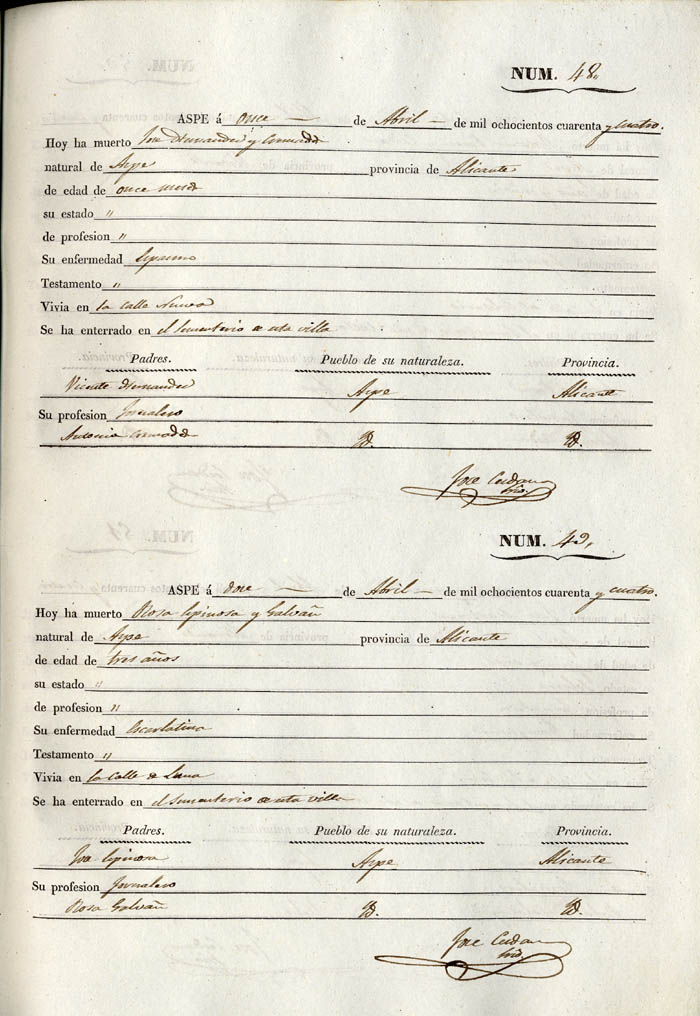 NUM. 48.
ASPE á once de Abril de mil ochocientos cuarenta y cuatro.
Hoy ha muerto Jose Hernandez y
natural de Aspe provincia de Alicante
de edad de once meses
su estado "
de profesion "
Su enfermedad Espasmo
Testamento "
Vivia en la calle Nueva
Se ha enterrado en el Sementerio de esta villa
Padres. Pueblo de su naturaleza. Provincia.
Vicente Hernandez Aspe Alicante
Su profesion Jornalero
Antonia Yd. Yd.
Jose
Srio.
NUM. 49.
ASPE á doce de Abril de mil ochocientos cuarenta y cuatro.
Hoy ha muerto Rosa Espinosa y Galvañ
natural de Aspe provincia de Alicante
de edad de tres años
su estado "
de profesion "
Su enfermedad Escarlatina
Testamento "
Vivia en la Calle de Luna
Se ha enterrado en el Sementerio de esta villa
Padres. Pueblo de su naturaleza. Provincia.
Jose Espinosa Aspe Alicante
Su profesion Jornalero
Rosa Galvañ Yd. Yd.
Jose
Srio.